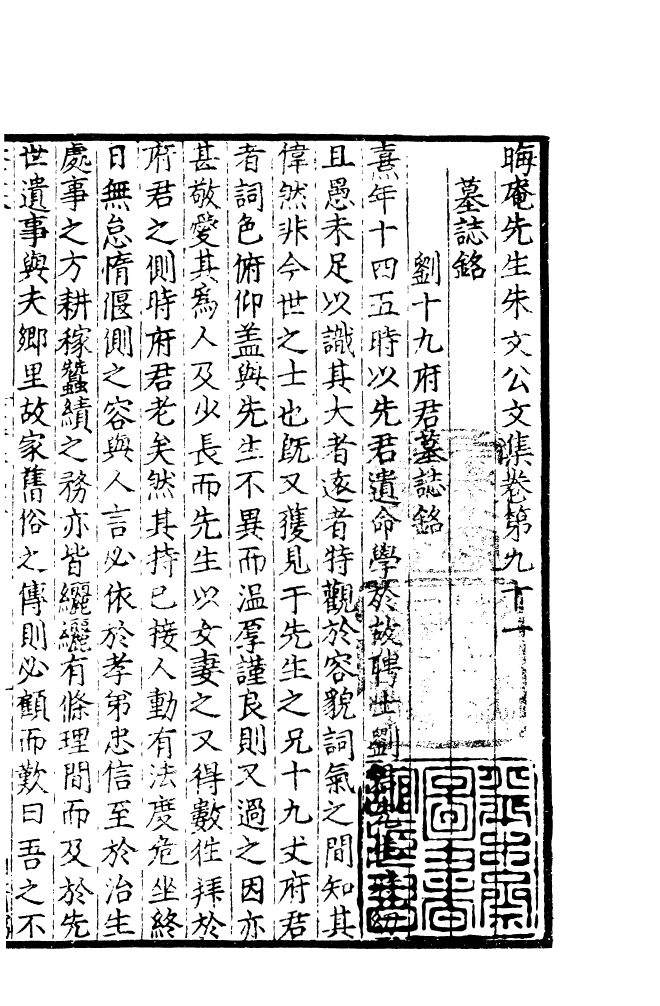 晦庵先生朱文公文集卷第九十一
墓誌銘
劉十九府君墓誌銘
熹年十四五時以先君遺命學於故聘士劉先生先生
且愚未足以識其大者遠者特觀於容貌詞氣之間知其
偉然非今世之士也旣又獲見于先生之兄十九丈府君
者詞色俯仰盖與先生不異而温厚謹良則又過之因亦
甚敬愛其爲人及少長而先生以女妻之又得數徃拜於
府君之側時府君老矣然其持已接人動有法度危坐終
日無怠惰偃側之容與人言必依於孝弟忠信至於治生
處事之方耕稼蠶績之務亦皆纚纚有條理間而及於先
世遺事與夫鄉里故家舊俗之傳則必顧而歎曰吾之不